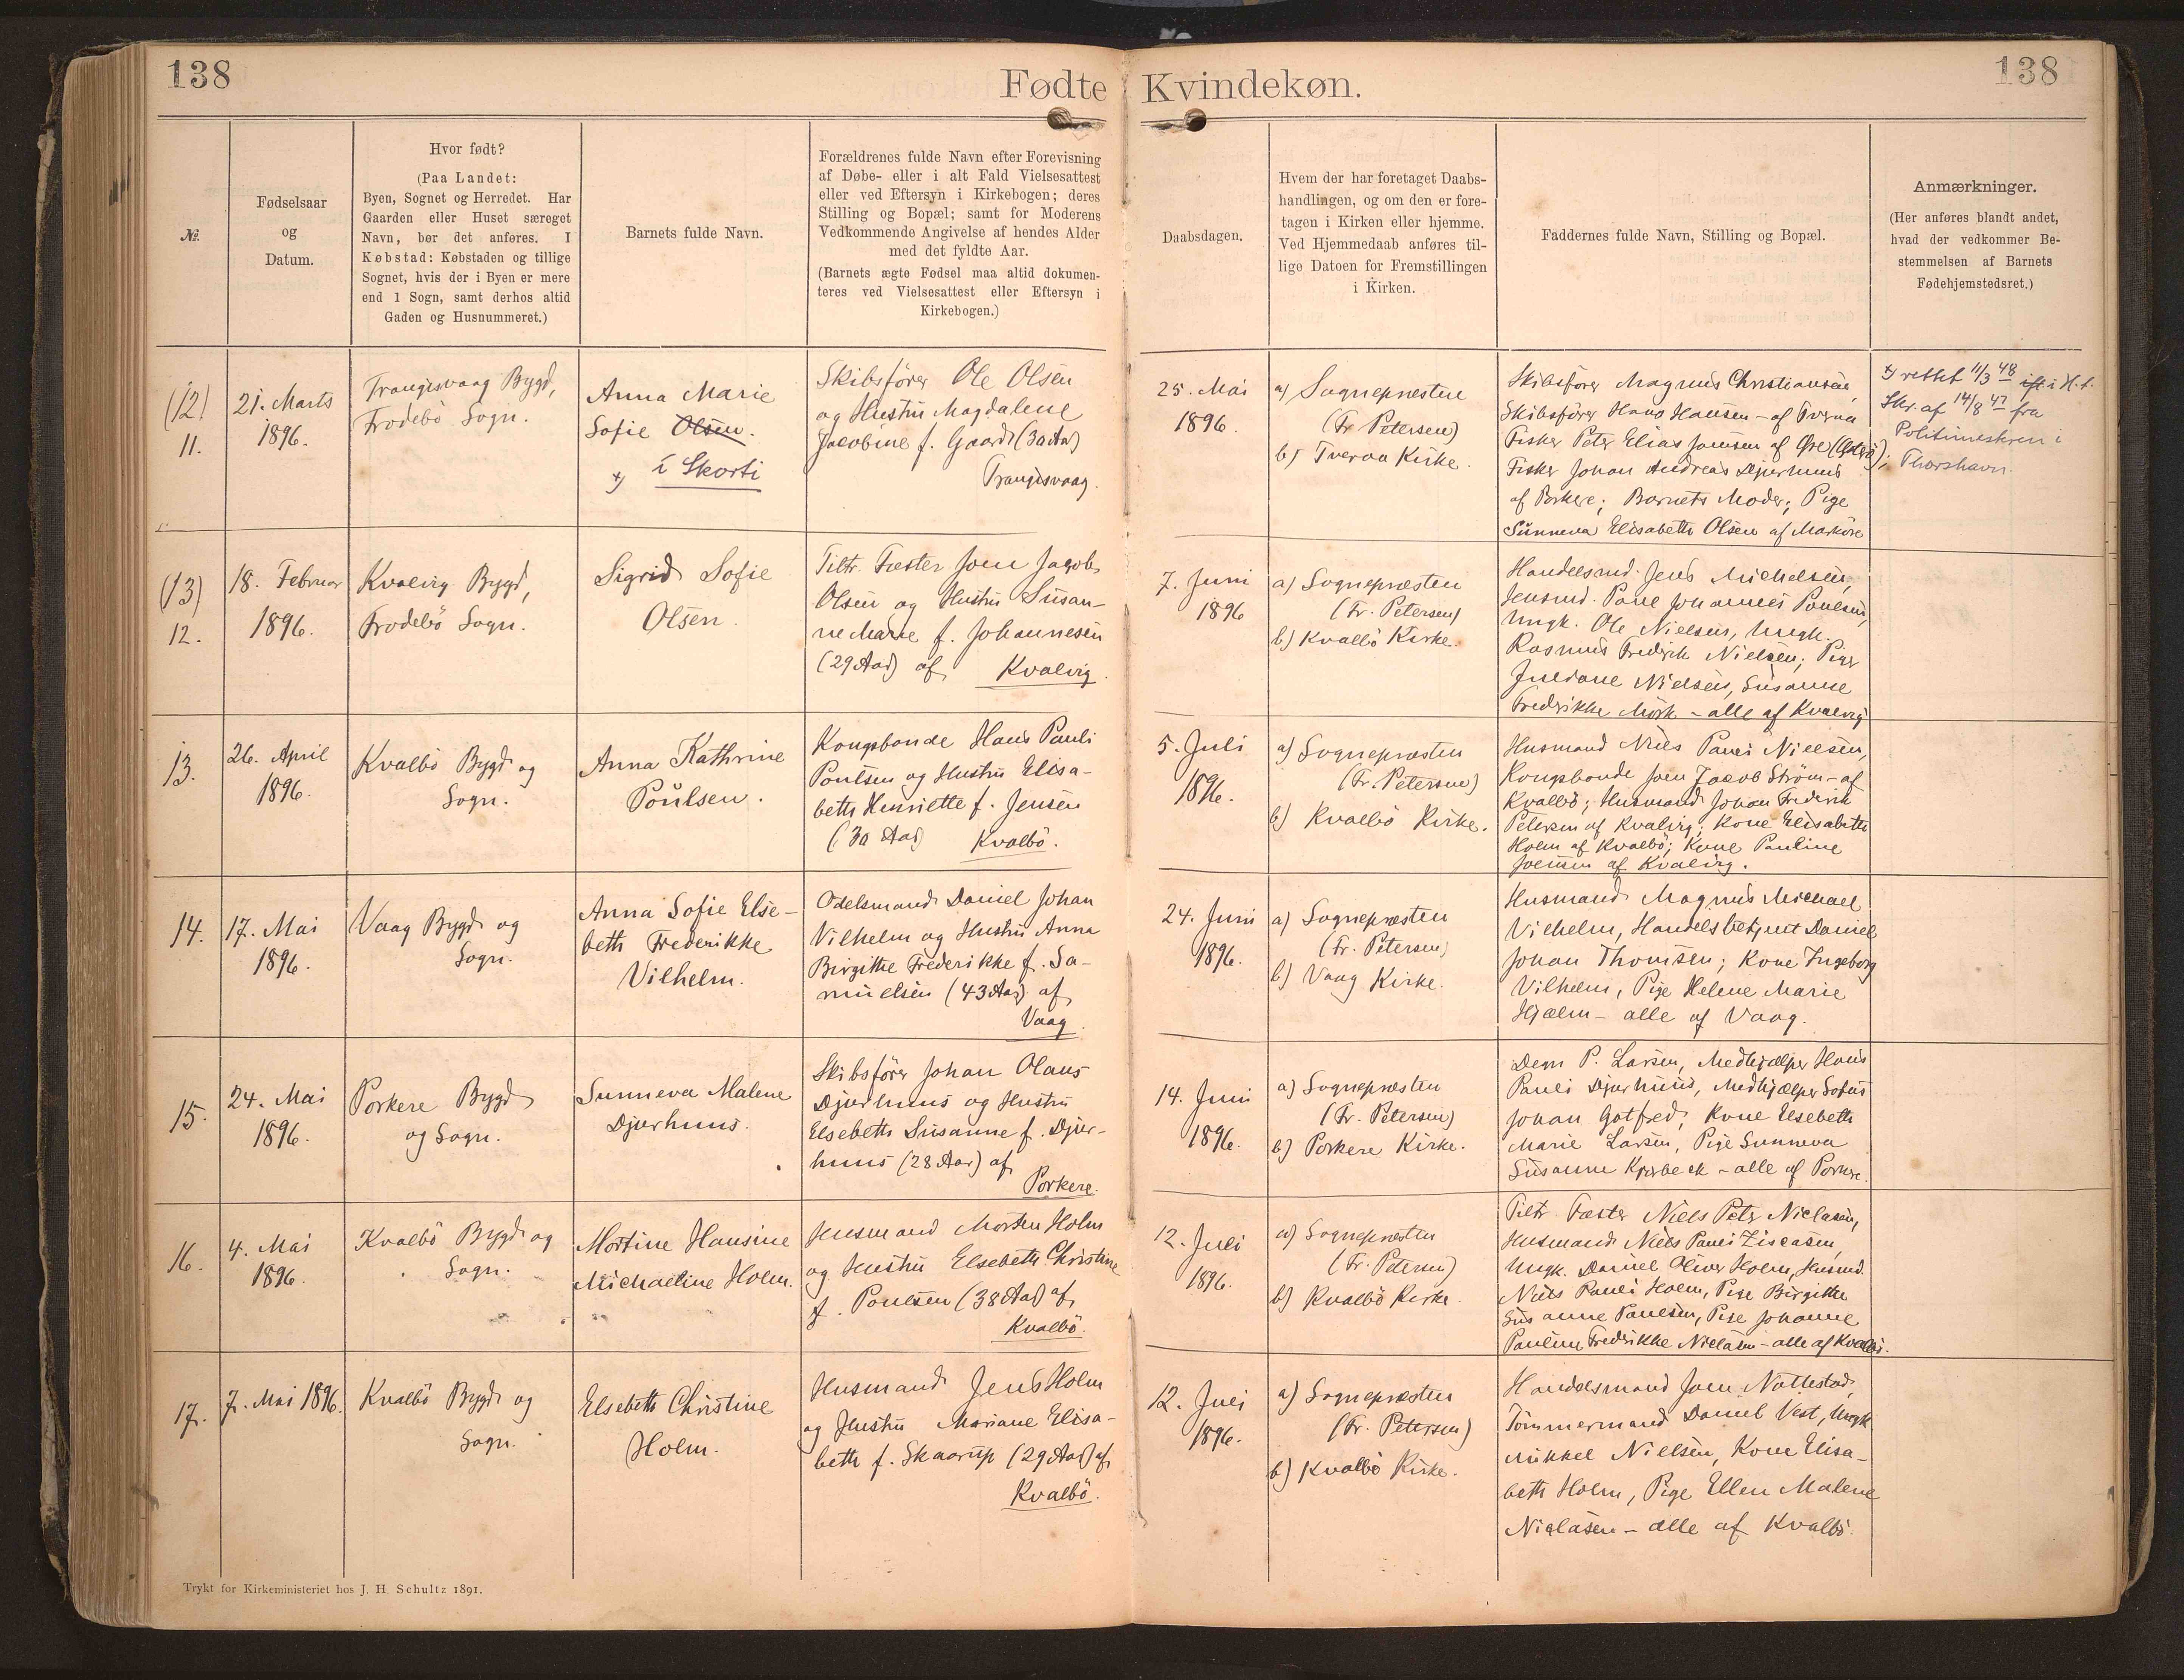 138
Fødte Kvindekøn.
138
№.
Fødselsaar
og
Datum.
Hvor født?
(Paa Landet:
Byen, Sognet og Herredet. Har
Gaarden eller Huset særeget
Navn, bør det anføres. I
Købstad: Købstaden og tillige
Sognet, hvis der i Byen er mere
end 1 Sogn, samt derhos altid
Gaden og Husnummeret.)
Barnets fulde Navn.
Forældrenes fulde Navn efter Forevisning
af Døbe- eller i alt Fald Vielsesattest
eller ved Eftersyn i Kirkebogen; deres
Stilling og Bopæl; samt for Moderens
Vedkommende Angivelse af hendes Alder
med det fyldte Aar.
(Barnets ægte Fødsel maa altid dokumen-
teres ved Vielsesattest eller Eftersyn i
Kirkebogen.)
Daabsdagen.
Hvem der har foretaget Daabs-
handlingen, og om den er fore-
tagen i Kirken eller hjemme.
Ved Hjemmedaab anføres til-
lige Datoen for Fremstillingen
i Kirken.
Faddernes fulde Navn, Stilling og Bopæl.
Anmærkninger.
(Her anføres blandt andet,
hvad der vedkommer Be-
stemmelsen af Barnets
Fødehjemstedsret.)
(12)
11.
21. Marts
1896.
Trangisvaag Bygd,
Frodebö Sogn.
Anna Marie
Sofie Olsen.
x) í Skorti
Skibsfører Ole Olsen
og Hustru Magdalene
Jacobine f. Gaard (30 Aar)
Trangisvaag.
25. Mai
1896.
a) Sognepræsten
(Fr. Petersen)
b) Tveraa Kirke.
Skibsfører Magnus Christiansen,
Skibsfører Hans Hansen - af Tveraa
Fisker Peter Elias Joensen af Øre (Østerö);
Fisker Johan Andreas Djurhuus
af Porkere; Barnets Moder; Pige
Sunneva Elisabeth Olsen af
x) rettet 11/3 48 ift. i H. t.
Skr. af 14/8 47 fra
Politimesteren i
Thorshavn.
(13)
12.
18. Februar
1896.
Kvalvig Bygd,
Frodebö Sogn.
Sigrid Sofie
Olsen.
Tiltr. Fæster Joen Jacob
Olsen og Hustru Susan-
ne Marie f. Johannesen
(29 Aar) af Kvalvig.
7. Juni
1896
a) Sognepræsten
(Fr. Petersen)
b) Kvalbö Kirke.
Handelsmd. Jens Michelsen,
Husmd. Poul Johannes Poulsen,
Ungk. Ole Nielsen, Ungk.
Rasmus Frederik Nielsen; Pige
Juliane Nielsen, Susanne
Frederikke Mörk - alle af Kvalvig
13.
26. April
1896.
Kvalbö Bygd og
Sogn.
Anna Kathrine
Poulsen.
Kongsbonde Hans Pauli
Poulsen og Hustru Elisa-
beth Henriette f. Jensen
(30 Aar) Kvalbö.
5. Juli
1896.
a) Sognepræsten
(Fr. Petersen)
b) Kvalbö Kirke.
Husmand Niels Pauli Nielsen,
Kongsbonde Joen Jacob Ström - af
Kvalbö; Husmand Johan Frederik
Petersen af Kvalvig; Kone Elisabeth
Holm af Kvalbö; Kone Pauline
Joensen af Kvalvig.
14.
17. Mai
1896.
Vaag Bygd og
Sogn.
Anna Sofie Else-
beth Frederikke
Vilhelm.
Odelsmand Daniel Johan
Vilhelm og Hustru Anna
Birgithe Frederikke f. Sa-
muelsen (43 Aar) af
Vaag.
24. Juni
1896.
a) Sognepræsten
(Fr. Petersen)
b) Vaag Kirke.
Husmand Magnus Michael
Vilhelm, Handelsbetjent Daniel
Johan Thomsen; Kone Ingeborg
Vilhelm, Pige Helene Marie
Hjælm - alle af Vaag.
15.
24. Mai
1896.
Porkere Bygd
og Sogn.
Sunneva Malene
Djurhuus.
Skibsfører Johan Olaus
Djurhuus og Hustru
Elsebeth Susanne f. Djur-
huus (28 Aar) af
Porkere.
14. Juni
1896.
a) Sognepræsten
(Fr. Petersen)
b) Porkere Kirke.
Degn P. Larsen, Medhjælper Hans
Pauli Djurhuus, Medhjælper Sofus
Johan Gotfred, Kone Elsebeth
Marie Larsen, Pige Sunneva
Susanne Kjerbeck - alle af Porkere.
16.
4. Mai
1896.
Kvalbö Bygd og
Sogn.
Mortine Hansine
Michaeline Holm.
Husmand Morten Holm
og Hustru Elsebeth Christine
f. Poulsen (38 Aar) af
Kvalbö.
12. Juli
1896.
a) Sognepræsten
(Fr. Petersen)
b) Kvalbö Kirke.
Tiltr. Fæster Niels Peter Niclasen,
Husmand Niels Pauli
Ungk. Daniel Oliver Holm, Husmd.
Niels Pauli Holm, Pige Birgithe
Susanne Paulsen, Pige Johanne
Pauline Frederikke Niclasen - alle af Kvalbö.
17.
7. Mai 1896.
Kvalbö Bygd og
Sogn.
Elsebeth Christine
Holm.
Husmand Jens Holm
og Hustru Mariane Elisa-
beth f. Skaarup (29 Aar) af
Kvalbö.
12. Juli
1896.
a) Sognepræsten
(Fr. Petersen)
b) Kvalbö Kirke.
Handelsmand Joen Nattestad,
Tömmermand Daniel Vest, Ungk.
Mikkel Nielsen, Kone Elisa-
beth Holm, Pige Ellen Malene
Niclasen - alle af Kvalbö.
Trykt for Kirkeministeriet hos J. H. Schultz 1891.